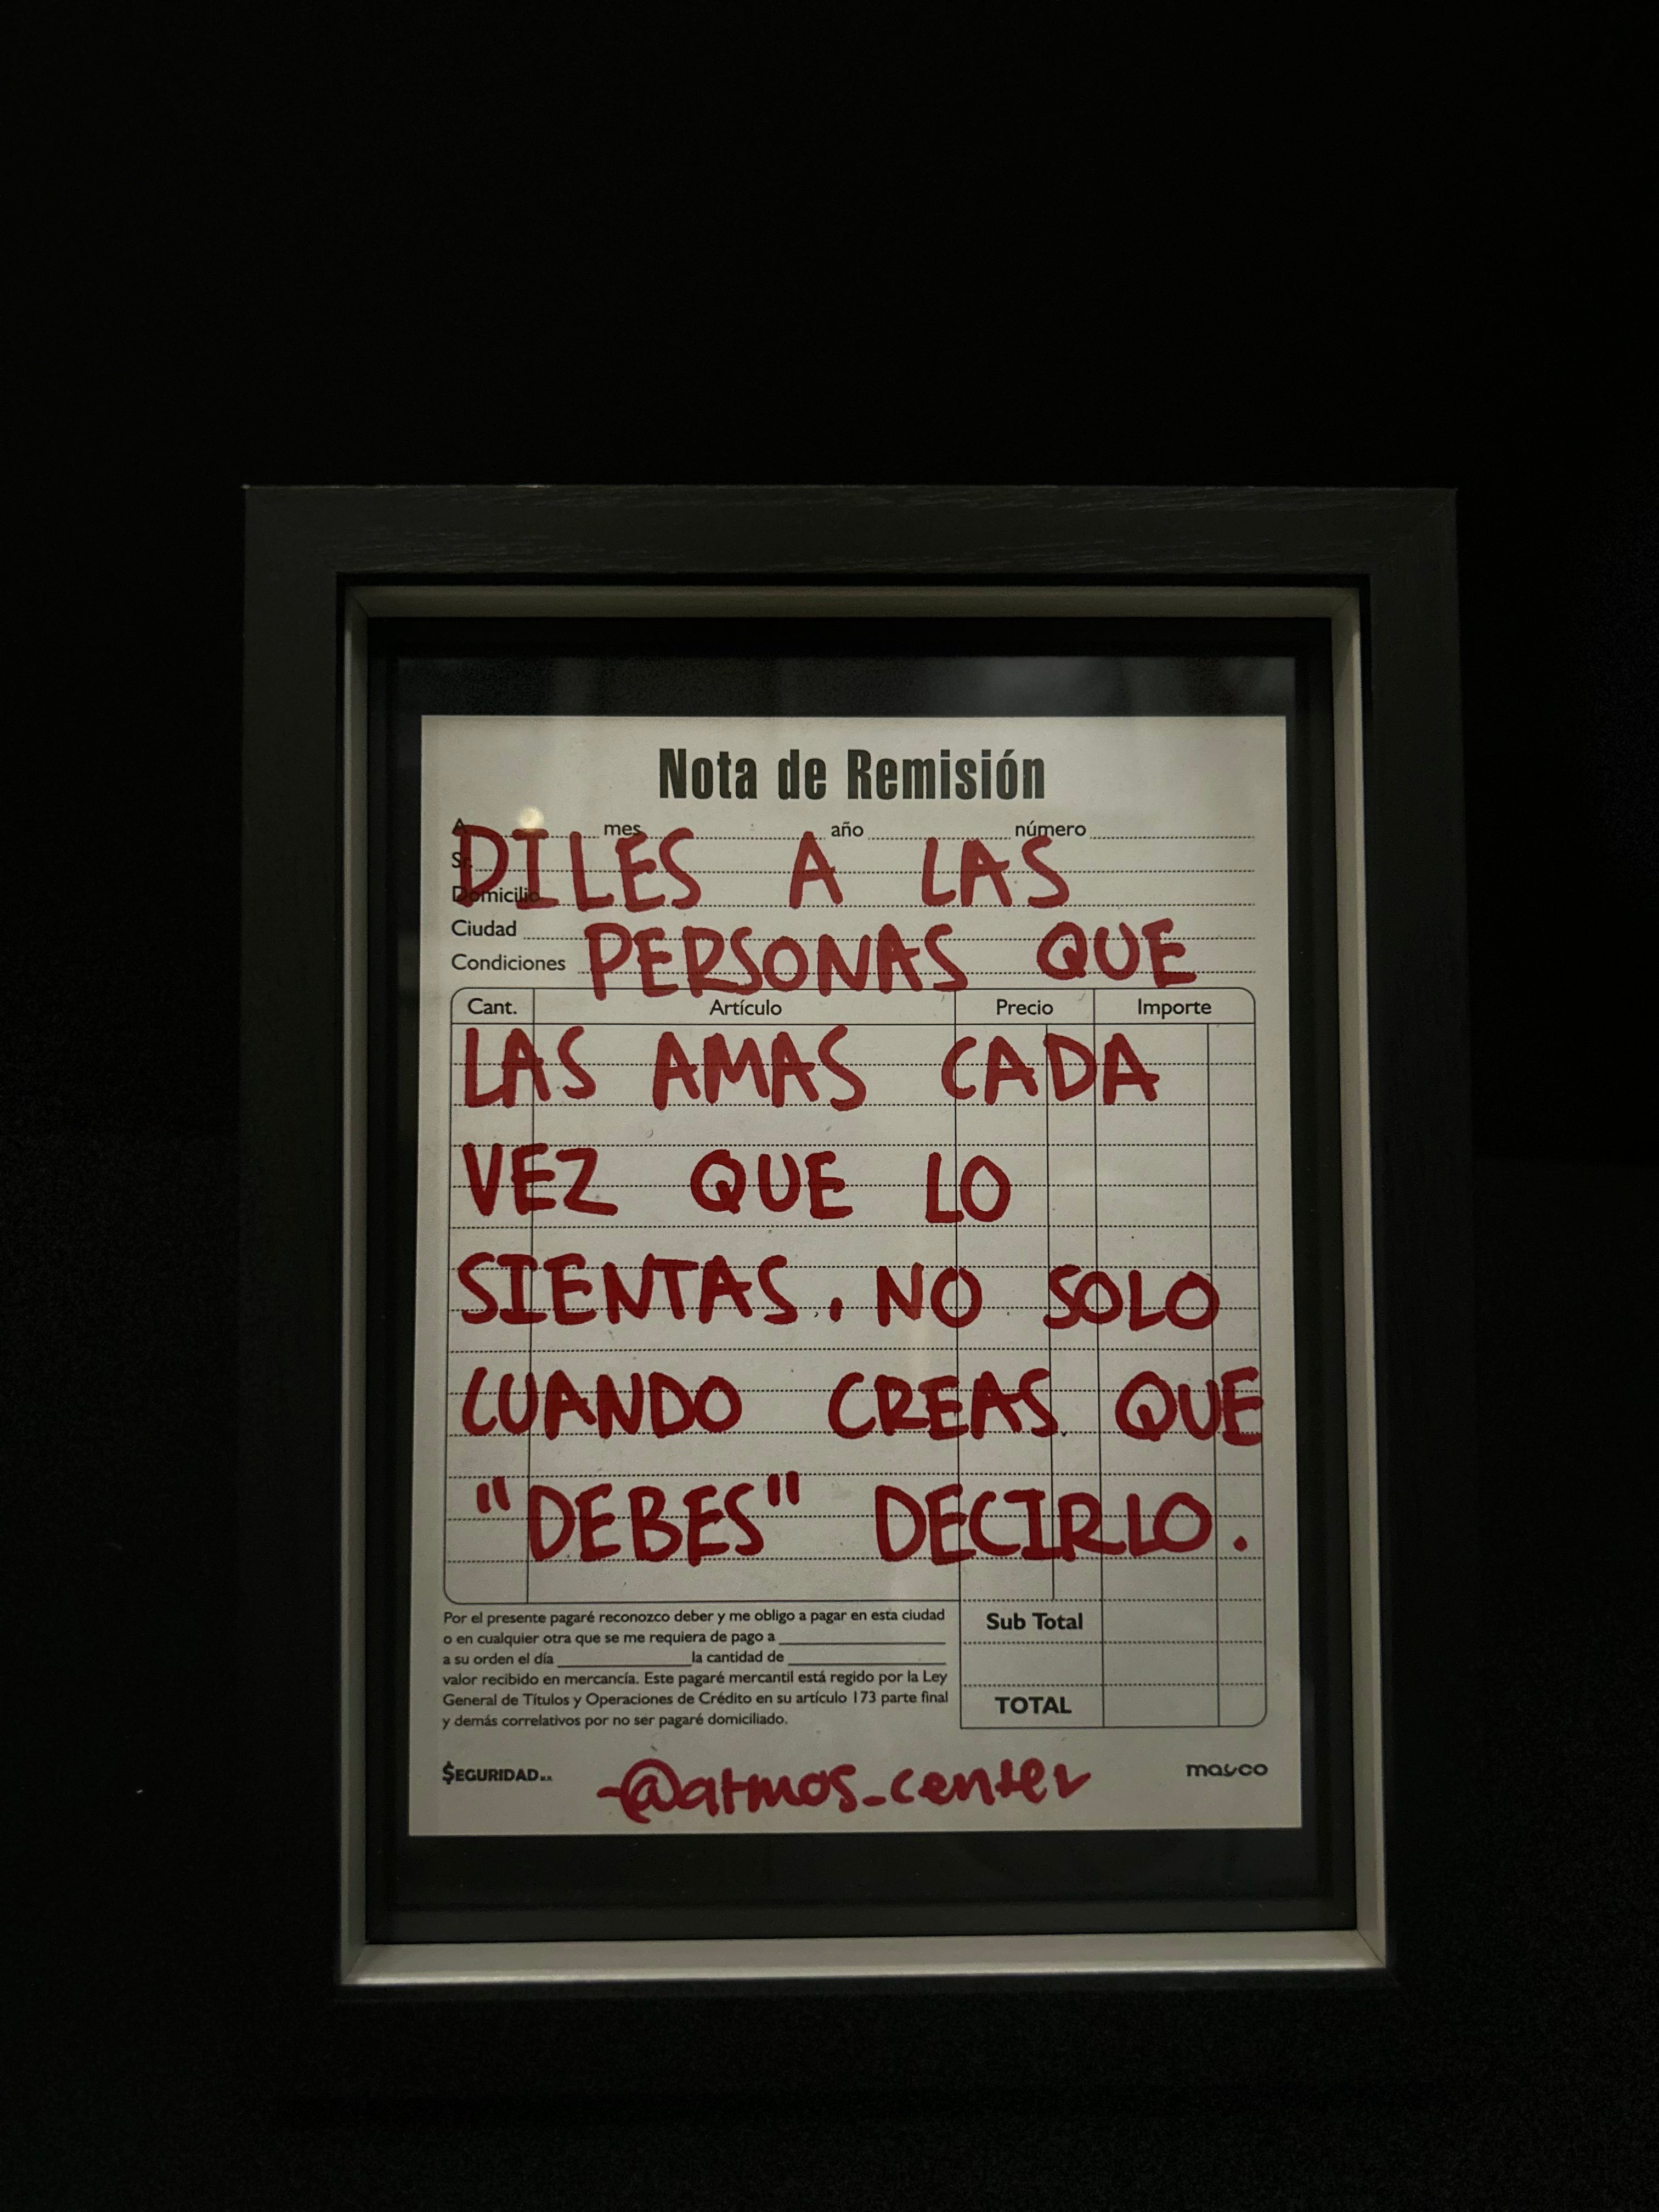 Nota de Remisión
A mes año número
DILES A LAS
Sr.
Domicilio
Ciudad
PERSONAS QUE
Condiciones
Cant. Artículo Precio Importe
LAS AMAS CADA
VEZ QUE LO
SIENTAS. NO SOLO
CUANDO CREAS QUE
"DEBES" DECIRLO.
Por el presente pagaré reconozco deber y me obligo a pagar en esta ciudad
o en cualquier otra que se me requiera de pago a
a su orden el día la cantidad de
valor recibido en mercancía. Este pagaré mercantil está regido por la Ley
General de Títulos y Operaciones de Crédito en su artículo 173 parte final
y demás correlativos por no ser pagaré domiciliado.
Sub Total
TOTAL
$EGURIDAD
-@atmos_center
mayco